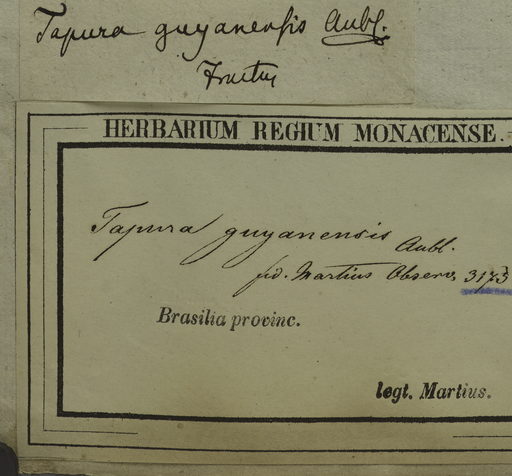 Tapura guyanensis Aubl.
Fructus
HERBARIUM REGIUM MONACENSE.
Tapura guyanensis Aubl.
fid. Martius Observ. 3173
Brasilia provinc.
legt. Martius.